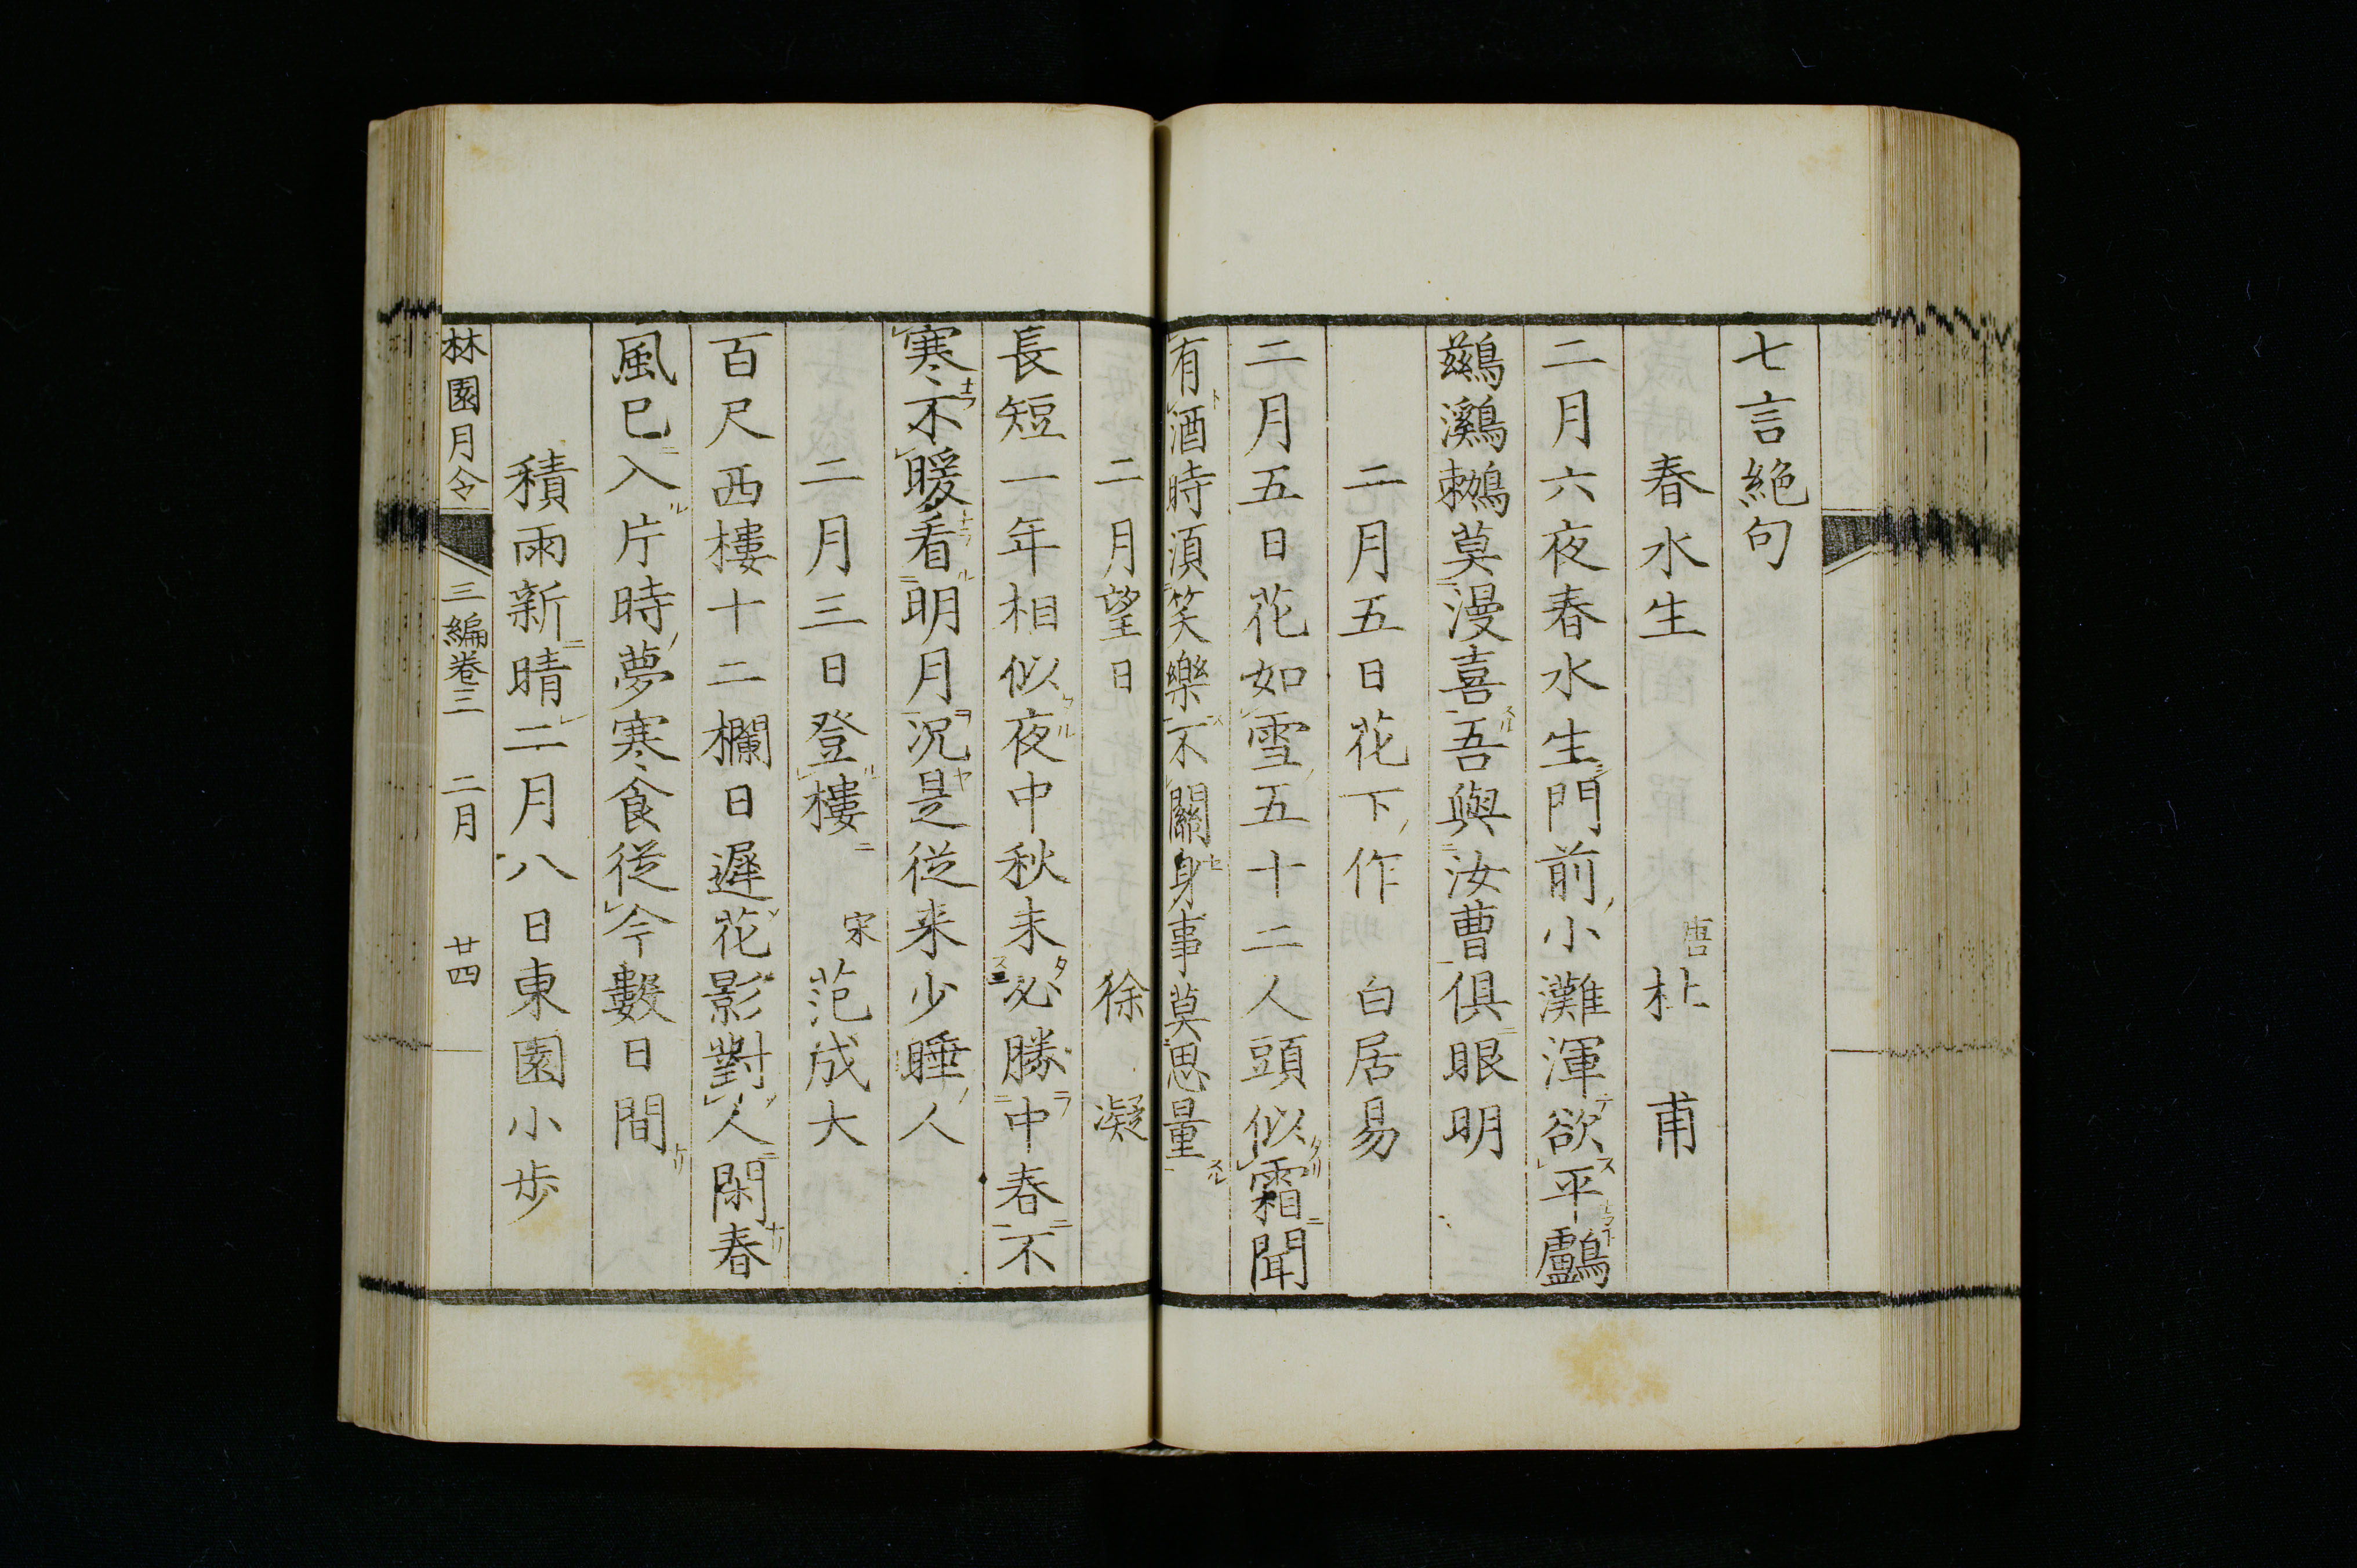 七言絶句
春水生 唐 杜甫
二月六夜春水生門前小灘渾欲平鸕
鷀鸂鶒莫漫喜吾與汝曹俱眼明
二月五日花下作 白居易
二月五日花如雪五十二人頭似霜聞
有酒時須笑樂不關身事莫思量
二月望日 徐凝
長短一年相似夜中秋未必勝中春不
寒不暖看明月況是從来少睡人
二月三日登樓 宋 范成大
百尺西樓十二欄日遲花影對人閑春
風已入片時夢寒食從今數日間
積雨新晴二月八日東園小歩
林園月令 三編卷三 二月 廿四